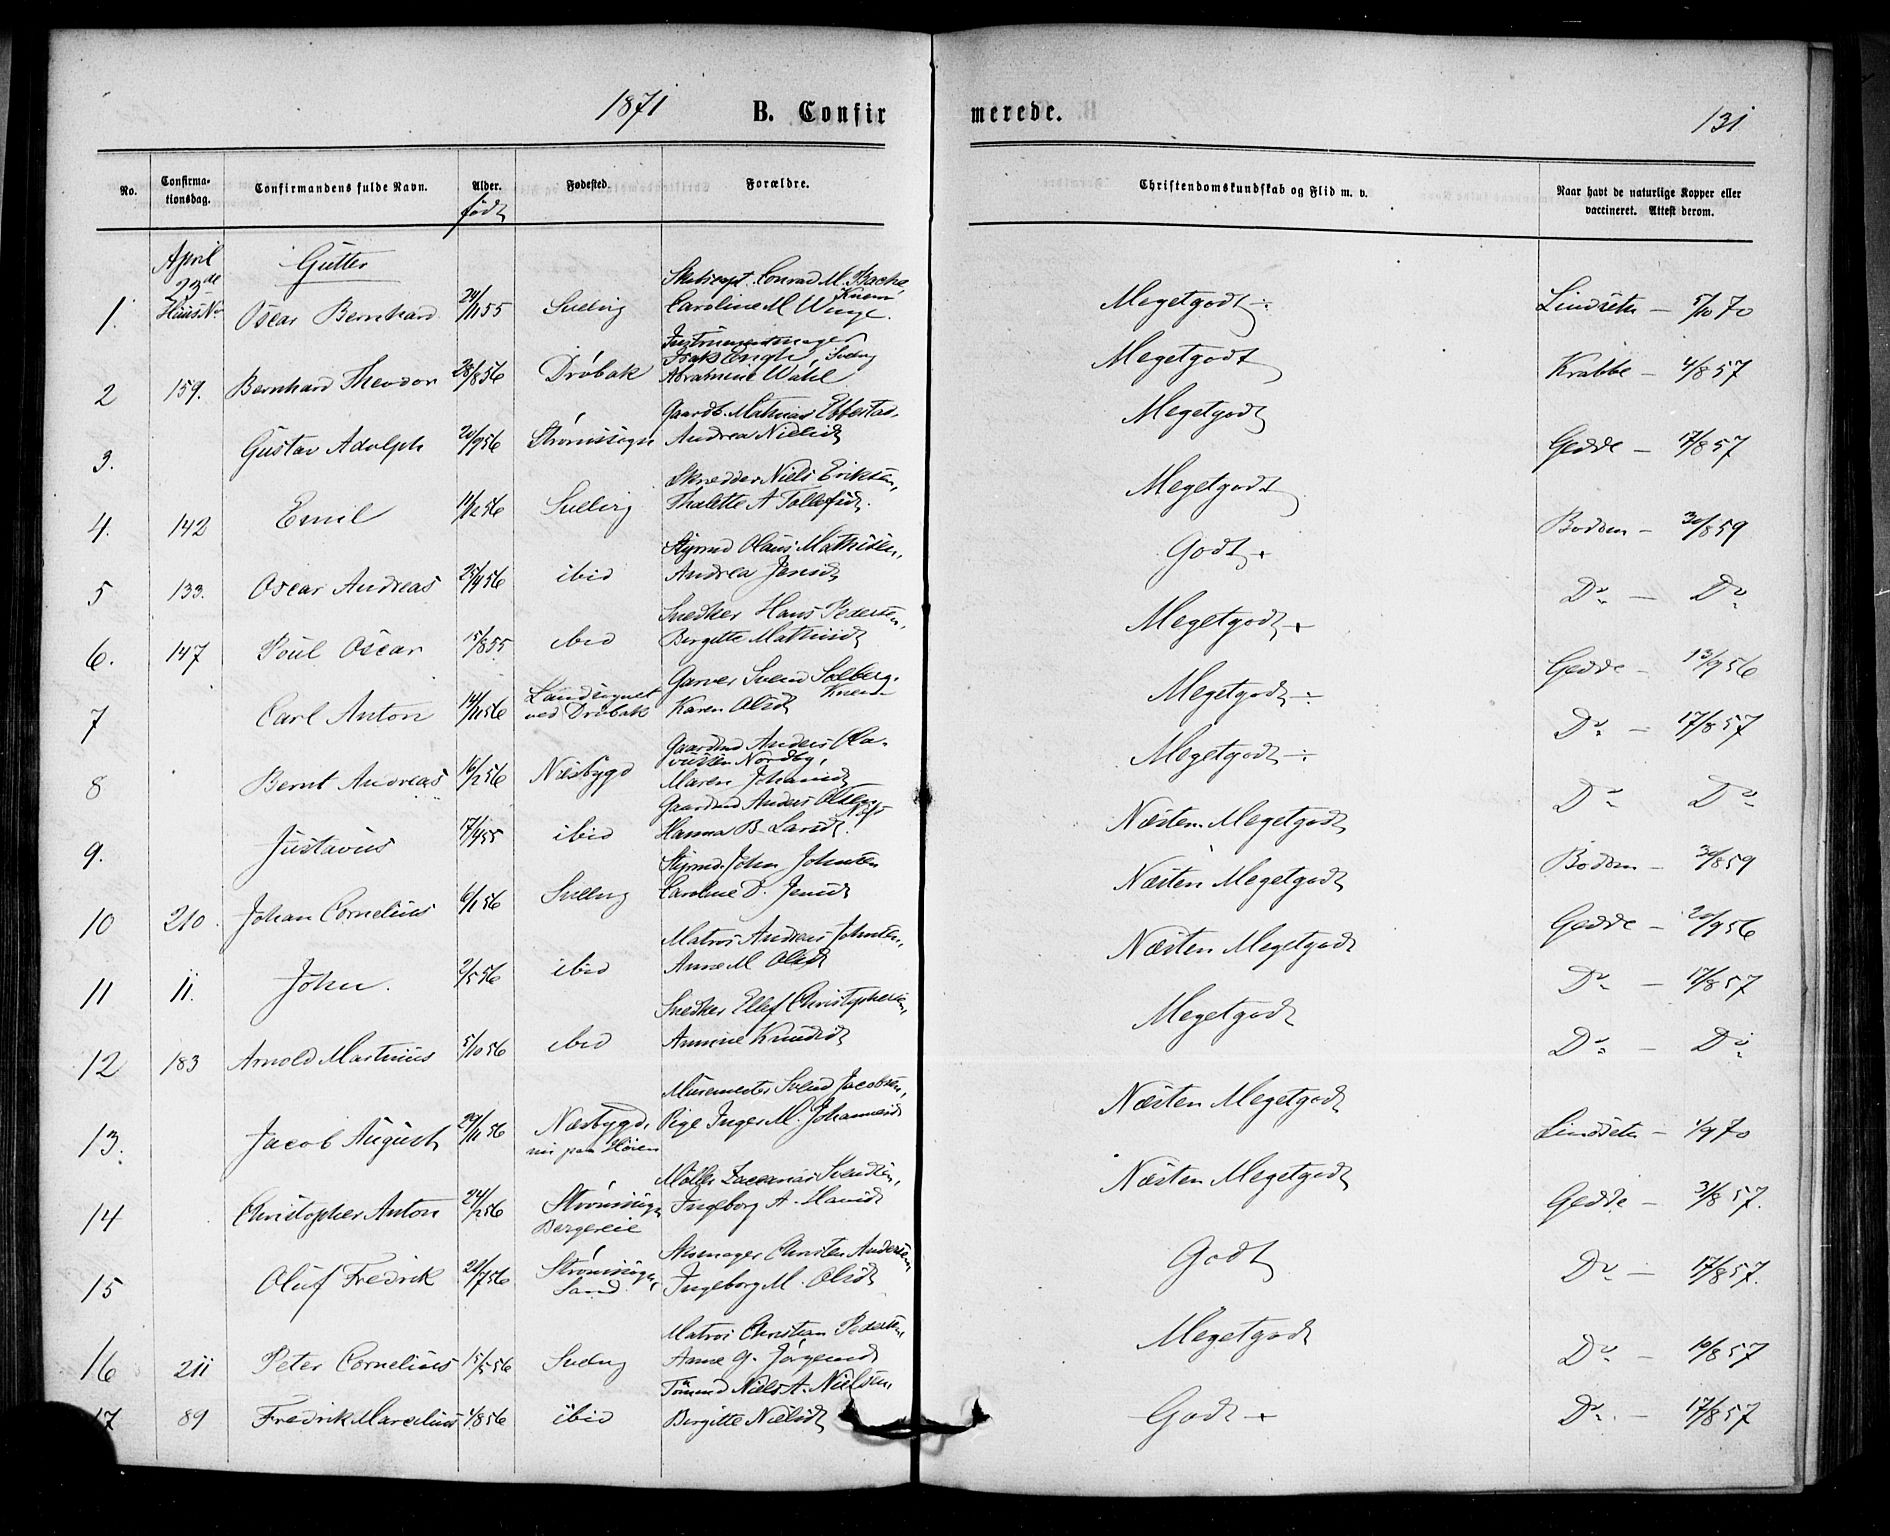 1871 B. Confirmerede. 131
No. Confirmationsdag. Confirmandens fulde Navn. Alder. Fødested. Forældre. Christendomskundskab og Flid m. v. Naar havt de naturlige Kopper eller vaccineret. Attest derom.
født
April 23de Gutter
Huus No
Skibscapt. Conrad M. Bache,
1. Oscar Bernhard 24/11 55 Svelvig Caroline M Winge. Meget godt ÷ Lindseth — 5/10 70
Instrumentmager
Isak Engh, Svelvig
2 159. Bernhard Theodor 28/8 56 Drøbak Abramine Wahl Meget godt Krabbe — 4/8 57
Gaardb. Mathias Ebbestad,
3. Gustav Adolph 20/9 56 Strømssogn Andrea Nielsd. Meget godt Gedde — 17/8 57
Skredder Niels Eriksen,
4. 142 Emil 14/12 56 Svelvig Thalette A Tollefsd. Meget godt Bodom — 30/8 59
Styrmd Olaus Mathisen,
5 133. Oscar Andreas 25/4 56 ibid Andrea Jensd. Godt + Do — Do
Snedker Hans Pedersen,
6. 147 Poul Oscar 15/8 55 ibid Birgitte Mathisd. Meget godt + Gedde — 13/9 56
Garver Svend Solberg.
7 Carl Anton 14/11 56 Landsognet ved Drøbak Karen Olsd. Meget godt ÷ Do — 17/8 57
Gaardmd Anders Olavussen Nordby,
8 Bernt Andreas 16/2 56 Næsbygd Maren Johansd. Meget godt ÷ Do — Do
Gaardmd Anders Olsen
9. Justavus 17/4 55 ibid Hanna B. Larsd. Næsten Meget godt Bodom — 30/8 59
Styrmd. John Johnsen
10 210. Johan Cornelius 6/1 56 Svelvig Caroline D. Jensd. Næsten Meget godt Gedde — 20/9 56
Matros Andreas Johnsen,
11 11. John. 2/5 56 ibid Anne M Olsd. Næsten Meget godt Do — 17/8 57
Snedker Ellef Christophersen,
12 183 Arnold Martinius 5/10 56 ibid Annine Knudsd. Meget godt Do — Do
Muremester Svend Jacobsen,
13. Jacob August 29/11 56 Næsbygd, nu paa Høien Pige Inger M. Johannesd. Næsten Meget godt Lindseth — 1/9 70
Møller Zacarias Svendsen,
14 Christopher Anton 24/12 56 Strømssogn Bergereie Ingeborg A. Hansd. Næsten Meget godt Gedde — 31/8 57.
Skomager Christen Andersen,
15 Oluf Fredrik 21/7 56 Strømssogn, Sand Ingeborg M. Olsd. Godt Do — 17/8 57.
Matros Christian Pedersen,
16 211 Peter Cornelius 15/5 56 Svelvig Anne G. Jørgensd. Meget godt Do — 10/8 57
Tømmd Niels A. Nielsen,
17 89 Fredrik Marcelius 4/8 56 ibid Birgitte Nielsd. Godt + Do — 17/8 57